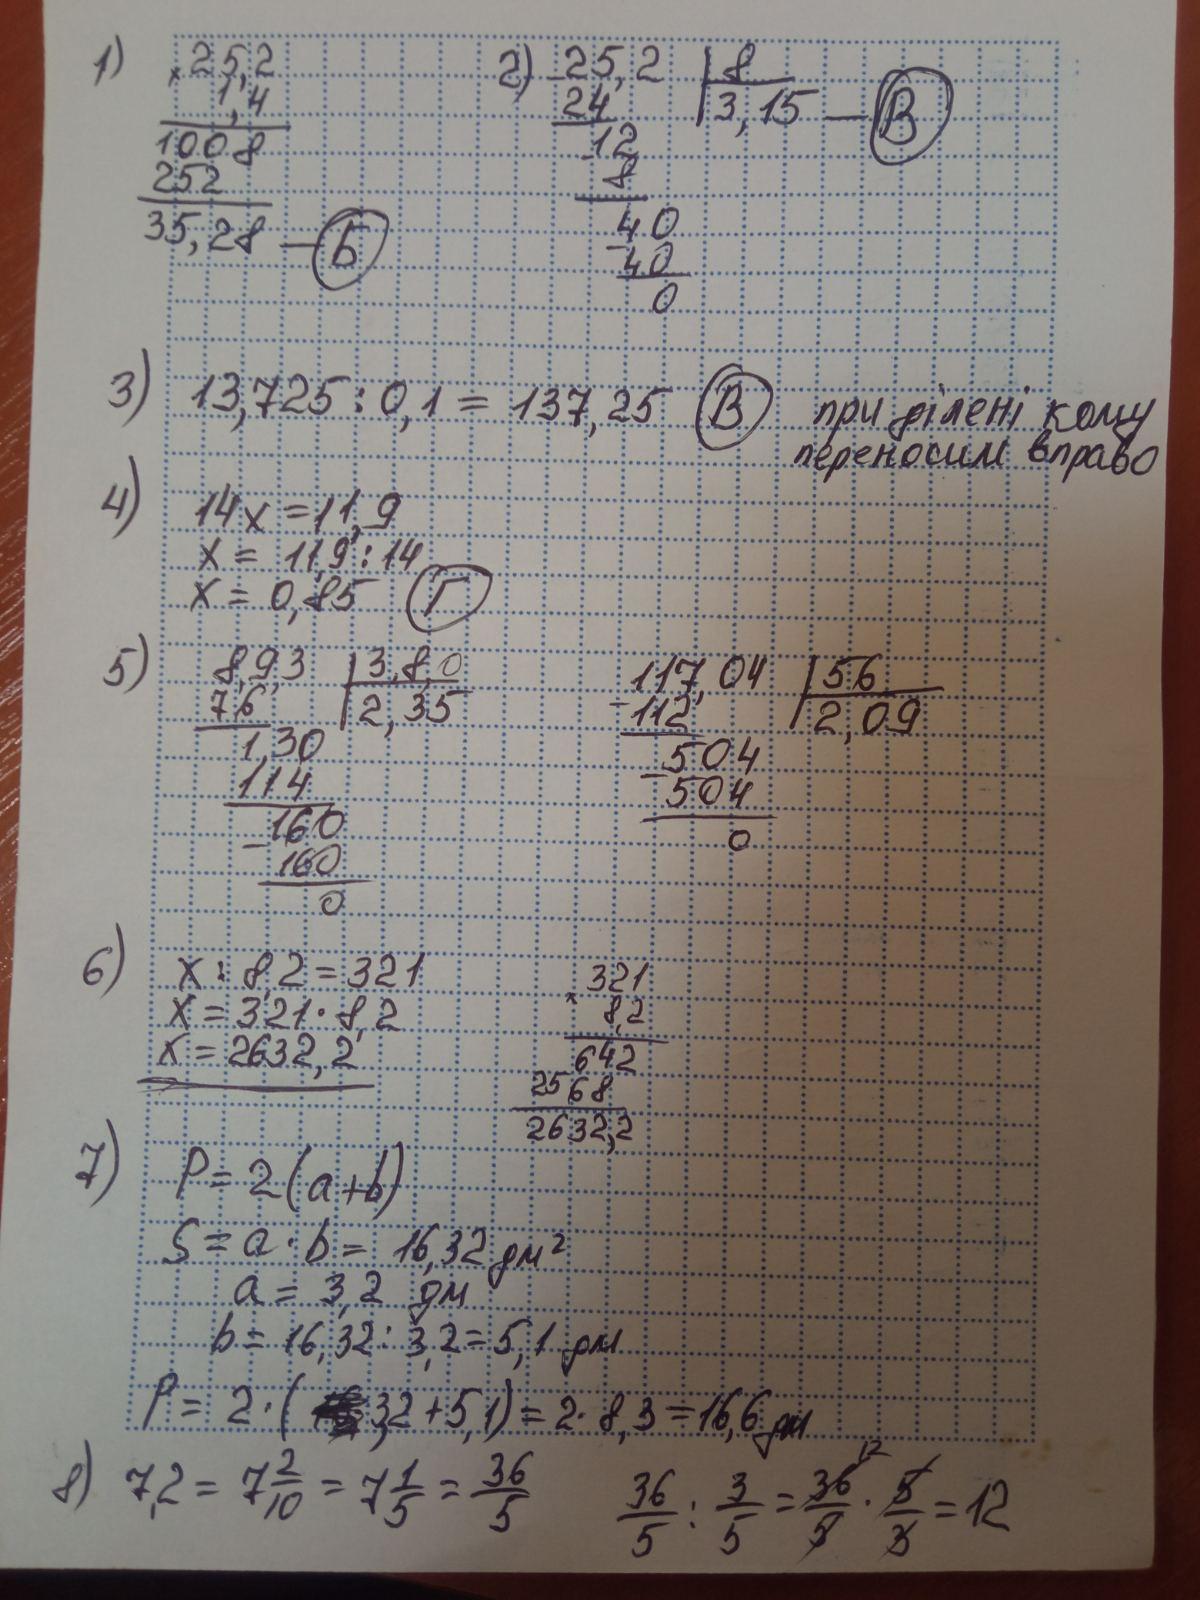 1) × 25,2
1,4
1008
252
35,28 — Б
2) - 25,2 | 8
24 | 3,15 — В
- 12
8
40
- 40
0
3) 13,725 : 0,1 = 137,25 В
при ділені кому
переносим вправо
4) 14x = 11,9
x = 11,9 : 14
x = 0,85 Г
5) 8,9,3 | 3,8,0
76 | 2,35
1,30
114
- 160
160
0
117,04 | 56
- 112 | 2,09
- 504
504
0
6) x : 8,2 = 321
x = 321 · 8,2
x = 2632,2
321
× 8,2
642
2568
2632,2
7) P = 2(a+b)
S = a · b = 16,32 дм²
a = 3,2 дм
b = 16,32 : 3,2 = 5,1 дм
P = 2 · ( 3,2 + 5,1) = 2 · 8,3 = 16,6 дм
8) 7,2 = 7 2/10 = 7 1/5 = 36/5
36/5 : 3/5 = 36/5 12 · 5/3 = 12